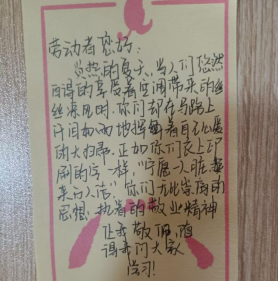 劳动者您好：
炎热的夏天，当人们悠然
自得的享受着空调带来的丝
丝凉风时，你们却在马路上
汗雨如
的大扫帚，正如你们衣上印
刷的字一样，“宁愿一人脏，
来万人洁”，你们无比崇高的
思想，执着的敬业精神
让我敬佩，值
得我们大家
学习！